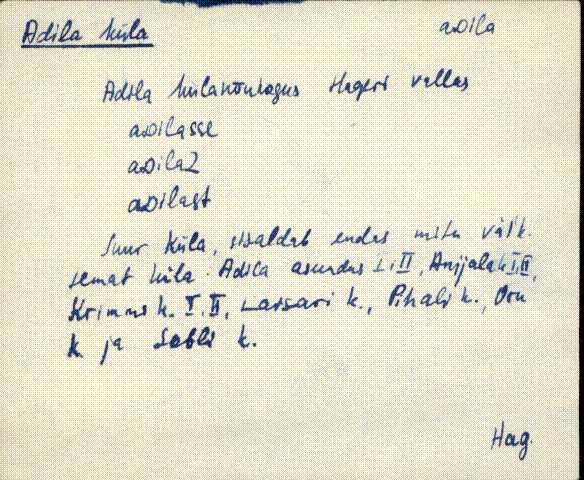 Adila küla
aDila
Adila külanõukogus Hageri vallas
aDilasse
aDilaz
aDilast
Suur küla, sisaldab endas mitu väik.
semat küla. Adila asundus I.II, Angjalak I.II,
Krimmi k. I.II, Larsari k., Pihali k., Oru
k. ja Sabli k.
Hag.